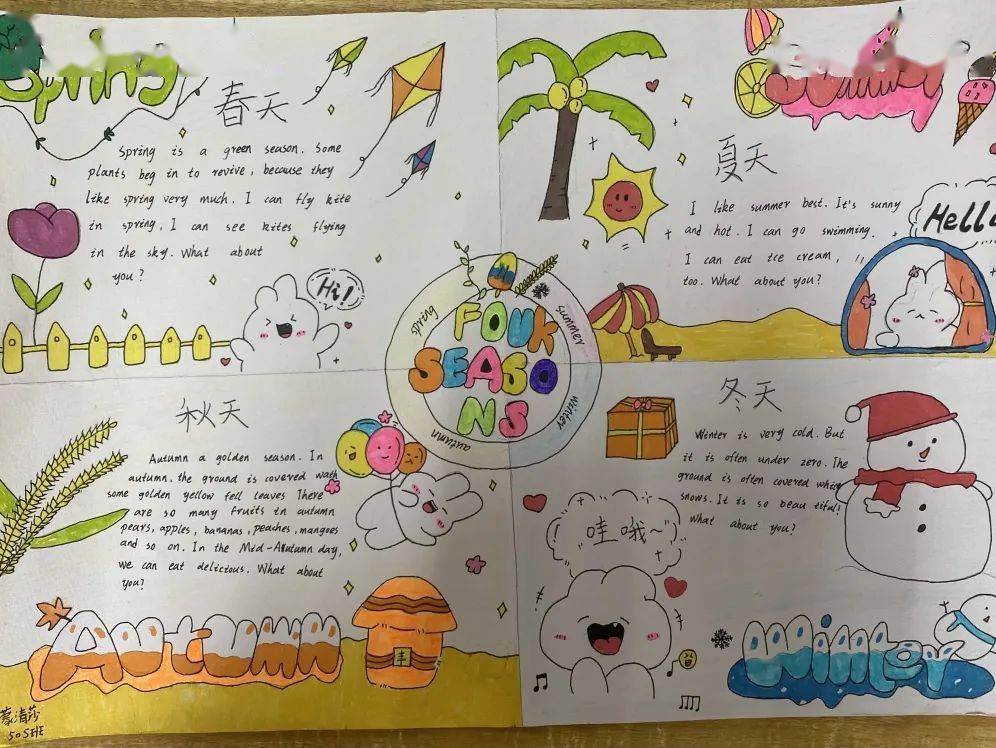 Spring
春天
Spring is a green season. Some
plants beg in to revive, because they
like spring very much. I can fly kite
in spring, I can see kites flying
in the sky. What about
you?
Hi!
Summer
夏天
I like summer best. It's sunny
and hot. I can go swimming.
I can eat ice cream,
too. What about you?
Hello
spring
summer
FOUR
SEASO
NS
autumn
winter
秋天
Autumn a golden season. In
autumn, the ground is covered with
some golden yellow fell leaves There
are so many fruits in autumn
pears, apples, bananas, peaches, mangoes
and so on. In the Mid-Autumn day,
we can eat delicious. What about
you?
Autumn
505班
冬天
Winter is very cold. But
it is often under zero. The
ground is often covered whith
snows. It is so beau tiful!
What about you?
哇哦~
Winter